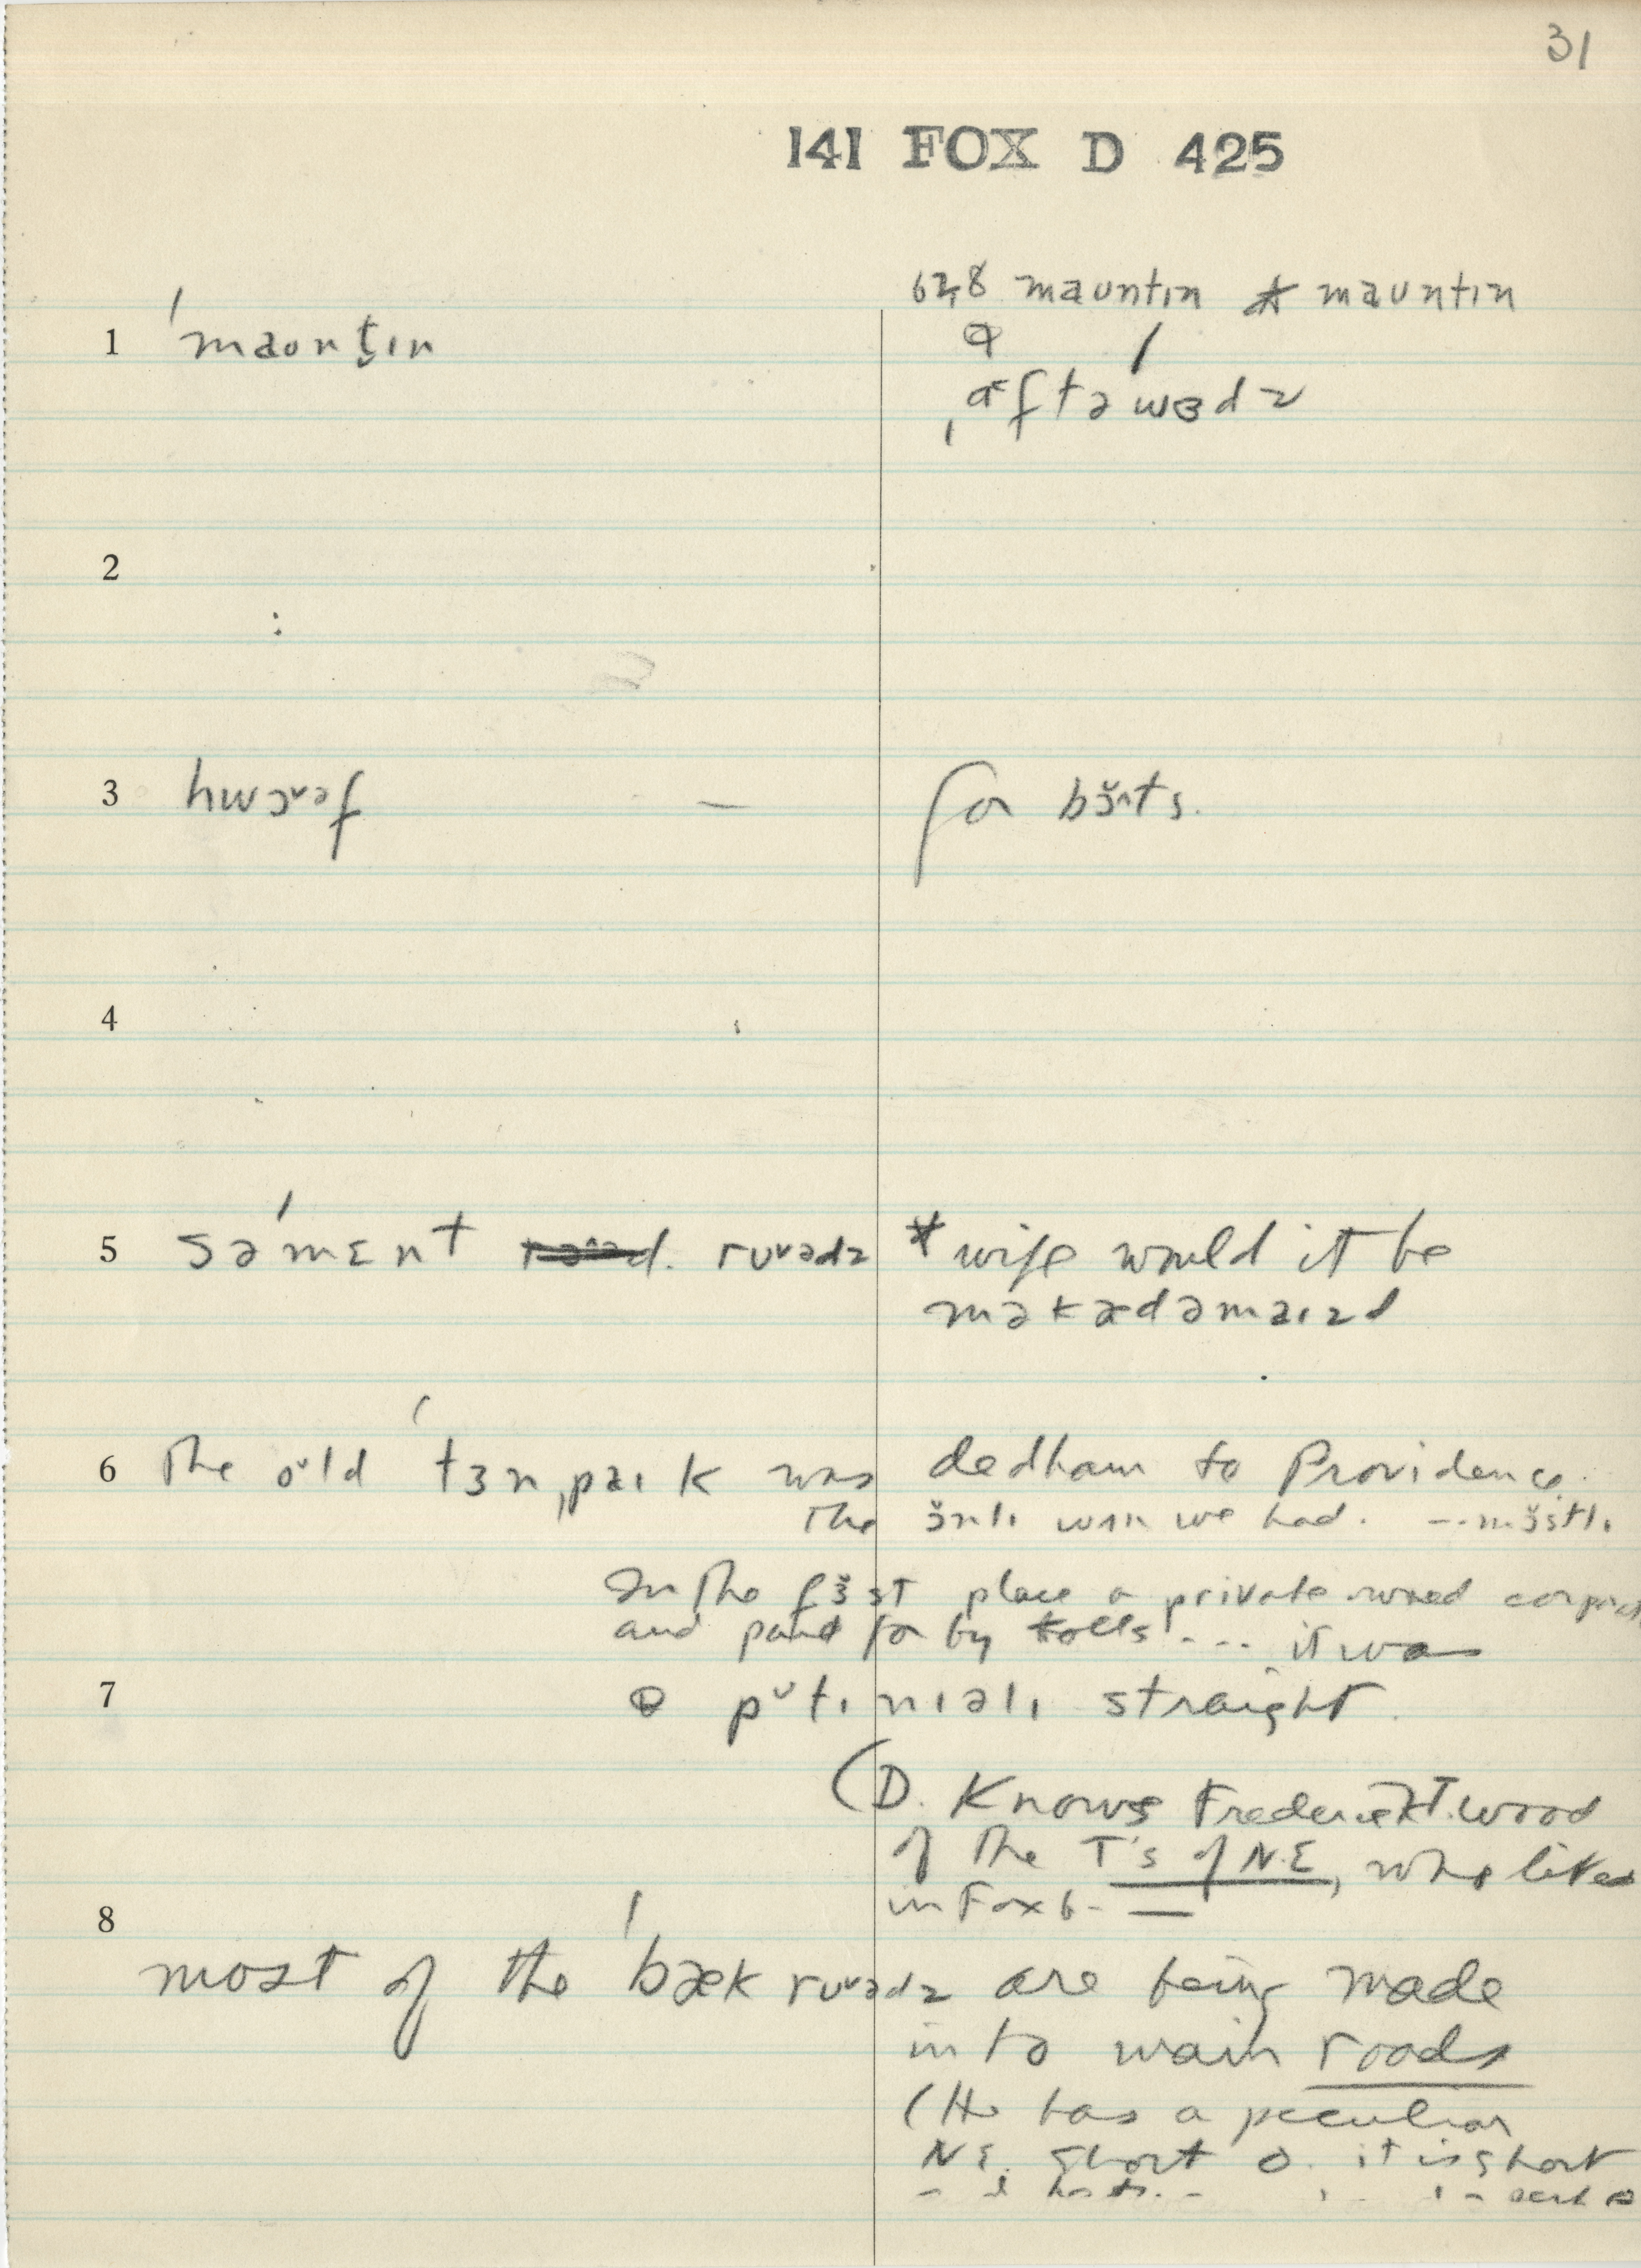 31
141 FOX D 425
62,8 mauntɪn * mauntɪn
1 ˈmaʊntɪn
ˌaftəwɜdz
2
3 hwɔəf — for bɔ̆ts.
4
5 səˈmɛnt rʊədz * wife would it be
məkædəmaɪzd
6 The old ˈtɜnˌpaɪk was dedham to Providence
The ɜ̆nlɪ wʌn we had. -- mɜ̆stlɪ
In the fɜ̆st place a private owned
and paid for by tolls --- it was
7 straight.
(D. Knows Frederick T. Wood
of the T's of N.E, who lived
in Foxb- —
8
most of the ˈbæk rʊədz are being made
into main roads
(He has a peculiar
N E. short o. it is short